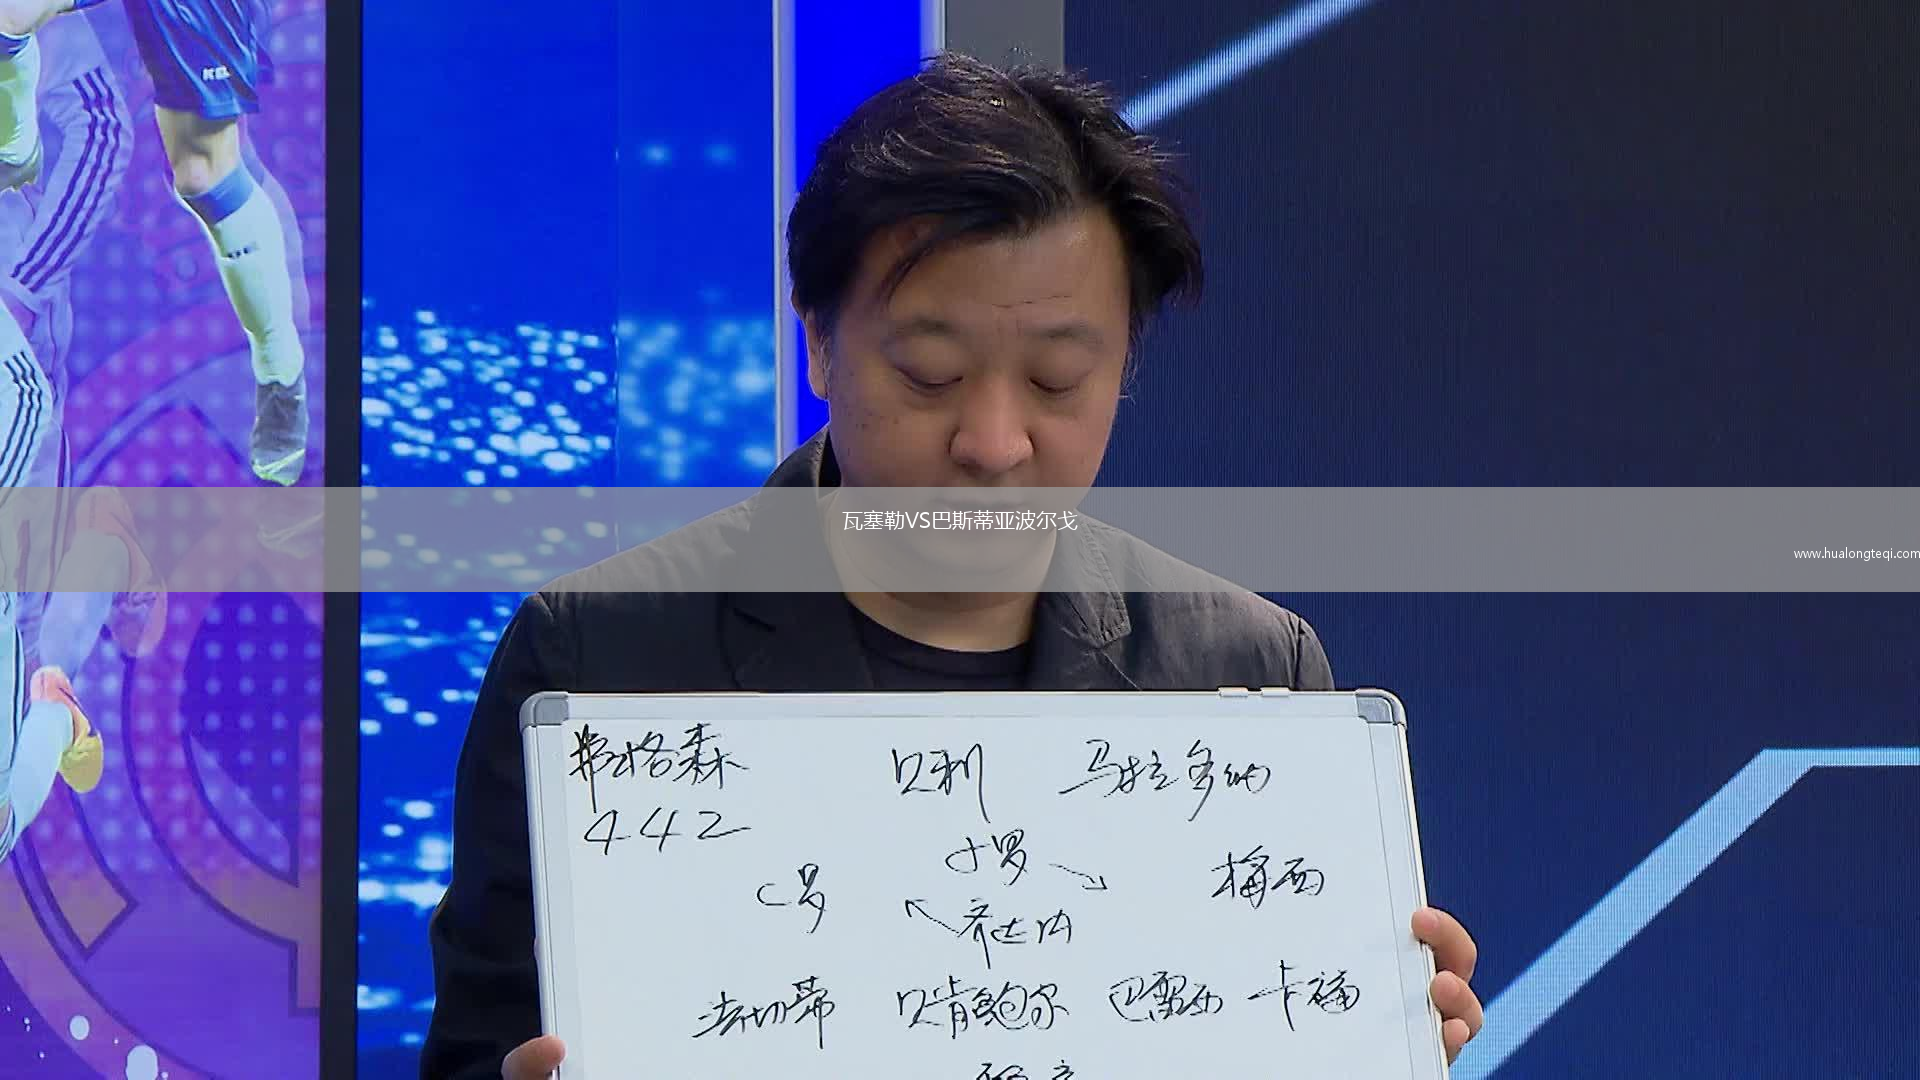 瓦塞勒VS巴斯蒂亚波尔戈
www.hualongteqi.com
弗格森 贝利 马拉多纳
442
小罗
C罗 梅西
齐达内
法切蒂 贝肯鲍尔 巴雷西 卡福